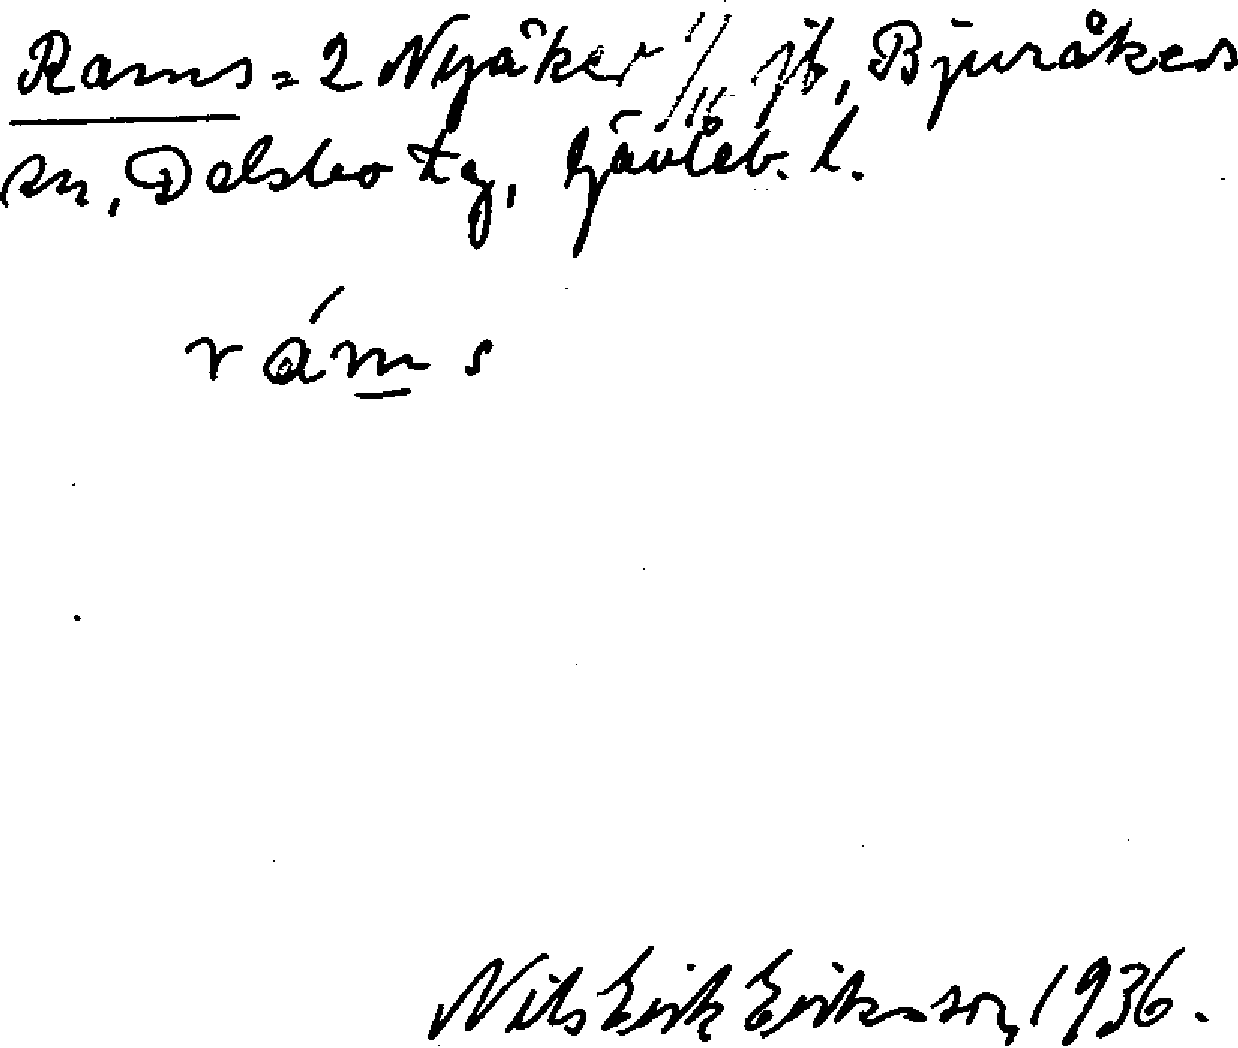 Rams = 2 Nyåker 1/16 jb, Bjuråkers
sn, Delsbo tg, Gävleb. l.
ráms
Nils Erik Eriksson, 1936.